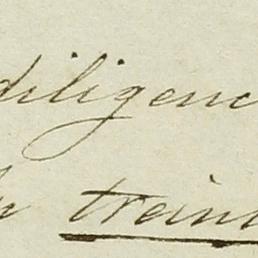 diligenc
trein